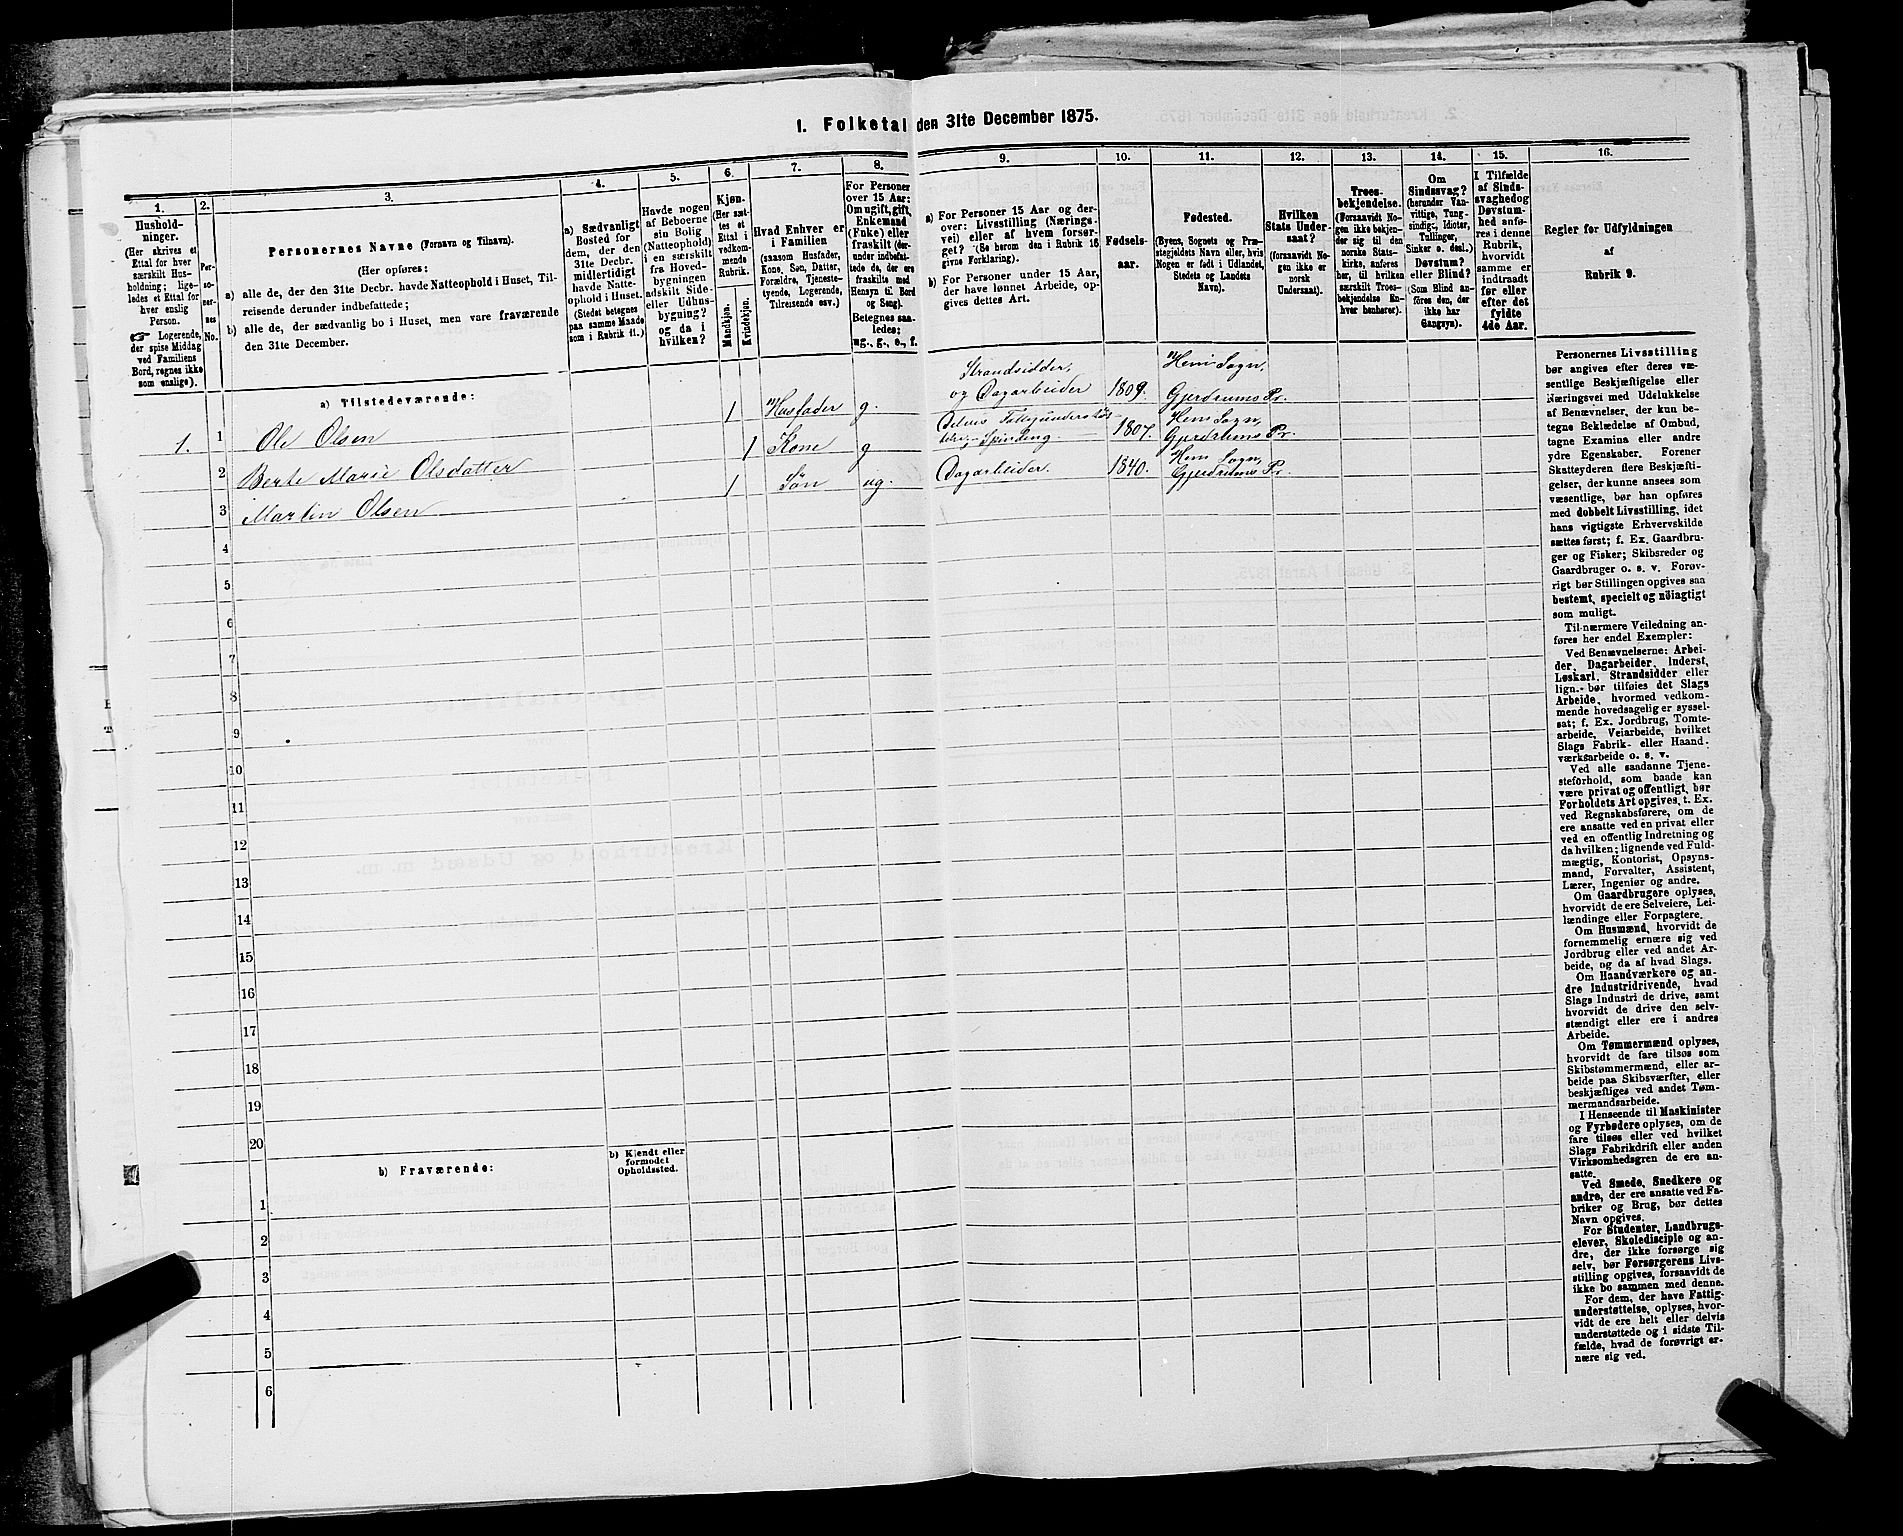 1. Folketal den 31te December 1875.
1.
Hushold-
ninger.
(Her skrives et
Ettal for hver
særskilt Hus-
holdning; lige-
ledes et Ettal for
hver enslig
Person.
☞ Logerende,
der spise Middag
ved Familiens
Bord, regnes ikke
som enslige).
2.
Per-
so-
ner-
nes
No.
3.
Personernes Navne (Fornavn og Tilnavn).
(Her opføres:
a) alle de, der den 31te Decbr. havde Natteophold i Huset, Til-
reisende derunder indbefattede;
b) alle de, der sædvanlig bo i Huset, men vare fraværende
den 31te December.
4.
a) Sædvanligt
Bosted for
dem, der den
31te Decbr.
midlertidigt
havde Natte-
ophold i Huset.
(Stedet betegnes
paa samme Maade
som i Rubrik 11.)
5.
Havde nogen
af Beboerne
sin Bolig
(Natteophold)
i en særskilt
fra Hoved-
bygningen
adskilt Side-
eller Udhus-
bygning?
og da i
hvilken?
6.
Kjøn.
(Her sæt-
tes et
Ettal i
vedkom-
mende
Rubrik.
Mandkjøn.
Kvindekjøn.
7.
Hvad Enhver er
i Familien
(saasom Husfader,
Kone, Søn, Datter,
Forældre, Tjeneste-
tyende, Logerende,
Tilreisende osv.)
8.
For Personer
over 15 Aar:
Om ugift, gift,
Enkemand
(Enke) eller
fraskilt (der-
under indbefat-
tede de, der ere
fraskilte med
Hensyn til Bord
og Seng).
Betegnes saa-
ledes:
ug., g., e., f.
9.
a) For Personer 15 Aar og der-
over: Livsstilling (Nærings-
vei) eller af hvem forsør-
get? (Se herom den i Rubrik 16
givne Forklaring).
b) For Personer under 15 Aar,
der have lønnet Arbeide, op-
gives dettes Art.
10.
Fødsels-
aar.
11.
Fødested.
(Byens, Sognets og Præ-
stegjeldets Navn eller, hvis
Nogen er født i Udlandet,
Stedets og Landets
Navn).
12.
Hvilken
Stats Under-
saat?
(forsaavidt No-
gen ikke er
norsk
Undersaat).
13.
Troes-
bekjendelse.
(Forsaavidt No-
gen ikke bekjen-
der sig til den
norske Stats-
kirke, anføres
her, til hvilken
særskilt Troes-
bekjendelse En-
hver henhører).
14.
Om
Sindssvag?
(herunder Van-
vittige, Tung-
sindige, Idioter,
Tullinger,
Sinker o. desl.)
Døvstum?
eller Blind?
(Som Blind an-
føres den, der
ikke har
Gangsyn).
15.
I Tilfælde
af Sinds-
svaghed og
Døvstum-
hed anfø-
res i denne
Rubrik,
hvorvidt
samme er
indtraadt
før eller
efter det
fyldte
4de Aar.
16.
Regler før Udfyldningen
af
Rubrik 9.
a) Tilstedeværende:
1. 1 Ole Olsen 1 Husfader g. Strandsidder, og Dagarbeider 1809. Hems Sogn, Gjerdrums Pr.
2 Berte Marie Olsdatter 1 Kone g Delvis Fattigunderstøt- telse, Spinding 1807. Hems Sogn, Gjerdrums Pr.
3 Martin Olsen 1 Søn ug. Dagarbeider. 1840. Hems Sogn, Gjerdrums Pr.
4
5
6
7
8
9
10
11
12
13
14
15
16
17
18
19
20
b) Fraværende:
b) Kjendt eller
formodet
Opholdssted.
1
2
3
4
5
6
Personernes Livsstilling
bør angives efter deres væ-
sentlige Beskjæftigelse eller
Næringsvei med Udelukkelse
af Benævnelser, der kun be-
tegne Beklædelse af Ombud,
tagne Examina eller andre
ydre Egenskaber. Forener
Skatteyderen flere Beskjæfti-
gelser, der kunne ansees som
væsentlige, bør han opføres
med dobbelt Livsstilling, idet
hans vigtigste Erhvervskilde
sættes først; f. Ex. Gaardbru-
ger og Fisker; Skibsreder og
Gaardbruger o. s. v. Forøv-
rigt bør Stillingen opgives saa
bestemt, specielt og nöiagtigt
som muligt.
Til nærmere Veiledning an-
føres her endel Exempler:
Ved Benævnelserne: Arbei-
der, Dagarbeider, Inderst,
Løskarl, Strandsidder eller
lign. bør tilføies det Slags
Arbeide, hvormed vedkom-
mende hovedsagelig er syssel-
sat; f. Ex. Jordbrug, Tomte-
arbeide, Veiarbeide, hvilket
Slags Fabrik- eller Haand-
værksarbeide o. s. v.
Ved alle saadanne Tjene-
steforhold, som baade kan
være privat og offentligt, bør
Forholdets Art opgives, t. Ex.
ved Regnskabsførere, om de
ere ansatte ved en privat eller
ved en offentlig Indretning og
da hvilken; lignende ved Fuld-
mægtig, Kontorist, Opsyns-
mand, Forvalter, Assistent,
Lærer, Ingeniør og andre.
Om Gaardbrugere oplyses,
hvorvidt de ere Selveiere, Lei-
lændinge eller Forpagtere.
Om Husmænd, hvorvidt de
fornemmelig ernære sig ved
Jordbrug eller ved andet Ar-
beide, og da af hvad Slags.
Om Haandværkere og an-
dre Industridrivende, hvad
Slags Industri de drive, samt
hvorvidt de drive den selv-
stændigt eller ere i andres
Arbeide.
Om Tømmermænd oplyses,
hvorvidt de fare tilsøs som
Skibstømmermænd, eller ar-
beide paa Skibsværfter, eller
beskjæftiges ved andet Tøm-
mermandsarbeide.
I Henseende til Maskinister
og Fyrbødere oplyses, om de
fare tilsøs eller ved hvilket
Slags Fabrikdrift eller anden
Virksomhedsgren de ere an-
satte.
Ved Smede, Snedkere og
andre, der ere ansatte ved Fa-
briker og Brug, bør dettes
Navn opgives.
For Studenter, Landbrugs-
elever, Skoledisciple og an-
dre, der ikke forsørge sig
selv, bør Forsørgerens Livs-
stilling opgives, forsaavidt de
ikke bo sammen med denne.
For dem, der have Fattig-
understøttelse, oplyses, hvor-
vidt de ere helt eller delvis
understøttede og i sidste Til-
fælde, hvad de forøvrigt er-
nære sig ved.